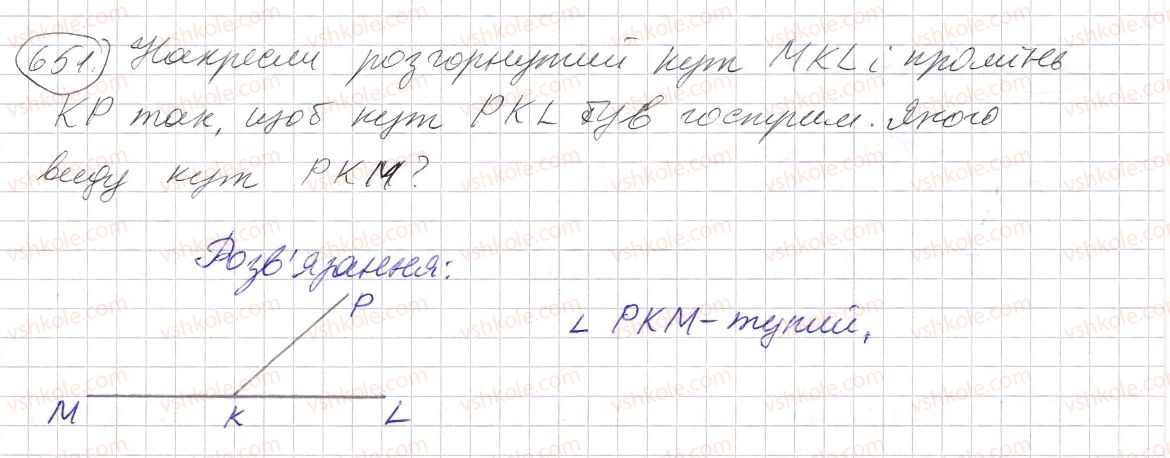 651. Накресли розгорнутий кут MKL і промінь
KP так, щоб кут PKL був гострим. Якого
виду кут PKM?
Розв'язання:
P
∠ PKM – тупий,
M K L